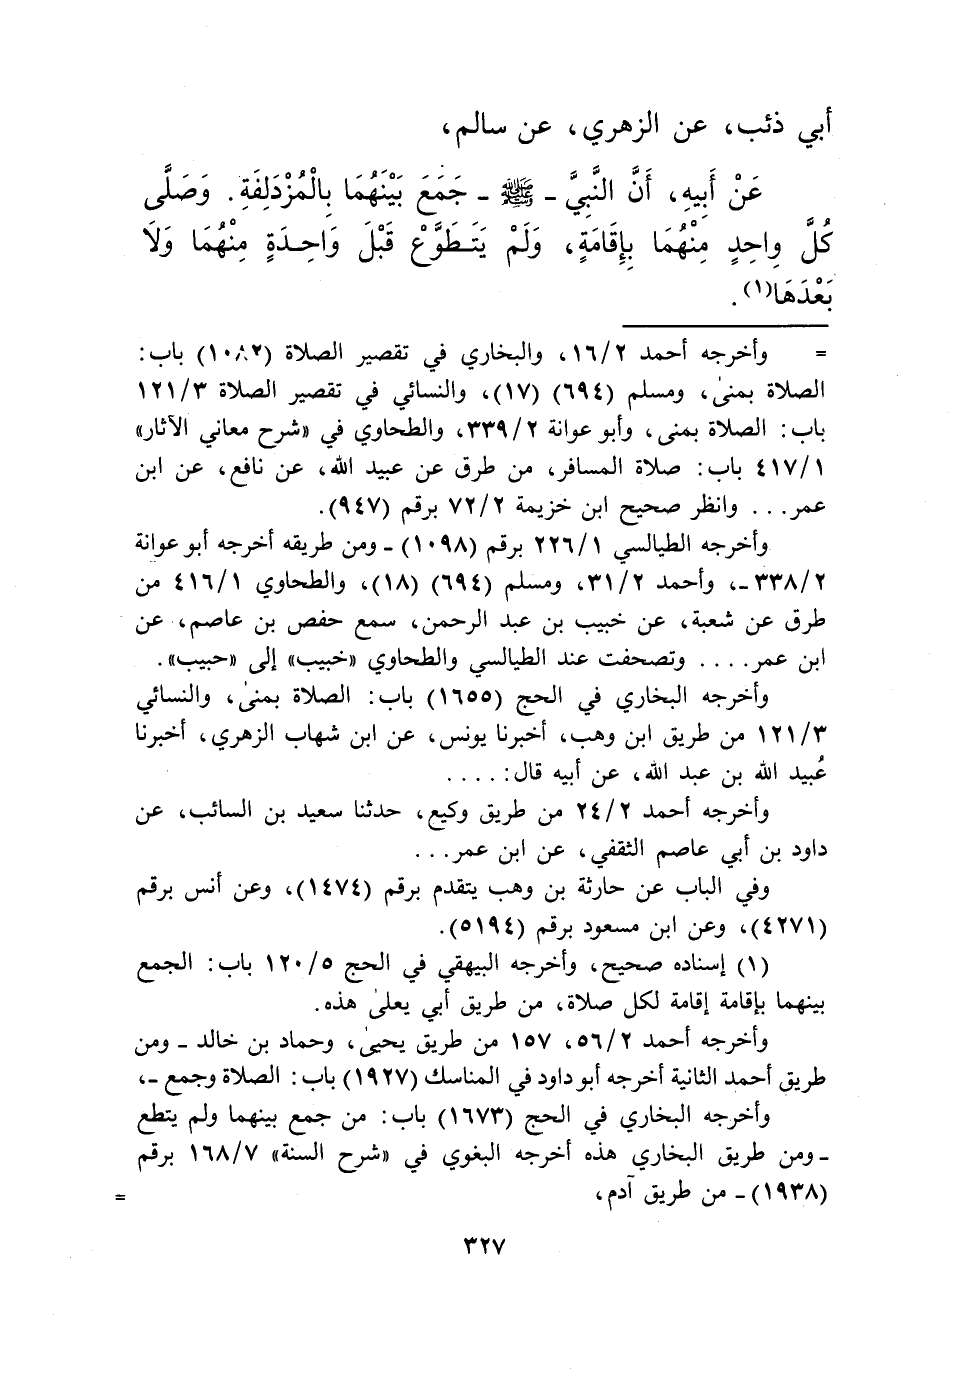 أبي ذئب، عن الزهري، عن سالم،
عَنْ أَبِيهِ، أَنَّ النَّبِيَّ - ﷺ - جَمَعَ بَيْنَهُمَا بِالْمُزْدَلِفَةِ. وَصَلَّى
كُلَّ وِاحِدٍ مِنْهُمَا بِإِقَامَةٍ، وَلَمْ يَتَطَوَّعْ قَبْلَ وَاحِدَةٍ مِنْهُمَا وَلَا
بَعْدَهَا(١).
= وأخرجه أحمد ١٦/٢، والبخاري في تقصير الصلاة (١٠٨٢) باب:
الصلاة بمنىٰ، ومسلم (٦٩٤) (١٧)، والنسائي في تقصير الصلاة ١٢١/٣
باب: الصلاة بمنى، وأبو عوانة ٣٣٩/٢، والطحاوي في «شرح معاني الآثار»
٤١٧/١ باب: صلاة المسافر، من طرق عن عبيد الله، عن نافع، عن ابن
عمر... وانظر صحيح ابن خزيمة ٧٢/٢ برقم (٩٤٧).
وأخرجه الطيالسي ٢٢٦/١ برقم (١٠٩٨) - ومن طريقه أخرجه أبو عوانة
٣٣٨/٢ -، وأحمد ٣١/٢، ومسلم (٦٩٤) (١٨)، والطحاوي ٤١٦/١ من
طرق عن شعبة، عن خبيب بن عبد الرحمن، سمع حفص بن عاصم، عن
ابن عمر.... وتصحفت عند الطيالسي والطحاوي «خبيب» إلى «حبيب».
وأخرجه البخاري في الحج (١٦٥٥) باب: الصلاة بمنىٰ، والنسائي
١٢١/٣ من طريق ابن وهب، أخبرنا يونس، عن ابن شهاب الزهري، أخبرنا
عُبيد الله بن عبد الله، عن أبيه قال:....
وأخرجه أحمد ٢٤/٢ من طريق وكيع، حدثنا سعيد بن السائب، عن
داود بن أبي عاصم الثقفي، عن ابن عمر...
وفي الباب عن حارثة بن وهب يتقدم برقم (١٤٧٤)، وعن أنس برقم
(٤٢٧١)، وعن ابن مسعود برقم (٥١٩٤).
(١) إسناده صحيح، وأخرجه البيهقي في الحج ١٢٠/٥ باب: الجمع
بينهما بإقامة إقامة لكل صلاة، من طريق أبي يعلىٰ هذه.
وأخرجه أحمد ٥٦/٢، ١٥٧ من طريق يحيىٰ، وحماد بن خالد - ومن
طريق أحمد الثانية أخرجه أبو داود في المناسك (١٩٢٧) باب: الصلاة وجمع -،
وأخرجه البخاري في الحج (١٦٧٣) باب: من جمع بينهما ولم يتطع
- ومن طريق البخاري هذه أخرجه البغوي في «شرح السنة» ١٦٨/٧ برقم
(١٩٣٨) - من طريق آدم، =
٣٢٧